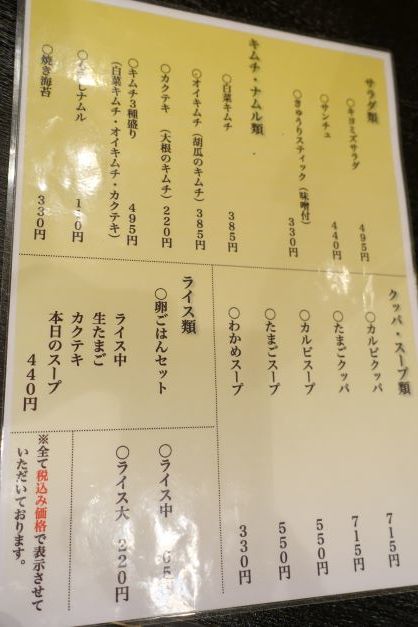 サラダ類
〇キヨミズサラダ 495円
〇サンチュ 440円
〇きゅうりスティック(味噌付) 330円
キムチ・ナムル類
〇白菜キムチ 385円
〇オイキムチ(胡瓜のキムチ) 385円
〇カクテキ (大根のキムチ) 220円
〇キムチ3種盛り 495円
(白菜キムチ・オイキムチ・カクテキ)
ナムル
〇焼き海苔 330円
クッパ・スープ類
〇カルビクッパ 715円
〇たまごクッパ 715円
〇カルビスープ 550円
〇たまごスープ 550円
〇わかめスープ 330円
ライス類
〇卵ごはんセット
ライス中
生たまご
カクテキ
本日のスープ
440円
〇ライス中
〇ライス大 220円
※全て税込み価格で表示させて
いただいております。